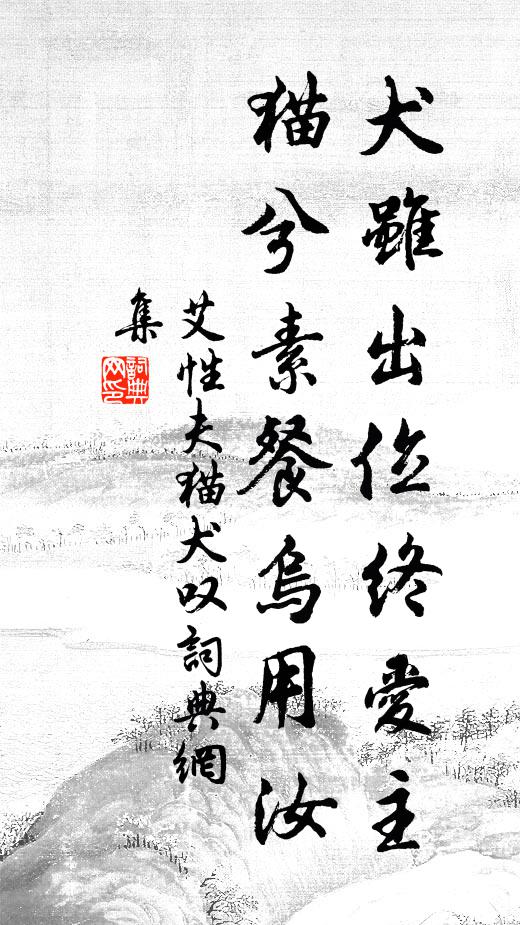 犬雖出位終愛主
猫兮素餐烏用汝
艾性夫猫犬叹詞典網
集
詞典网印